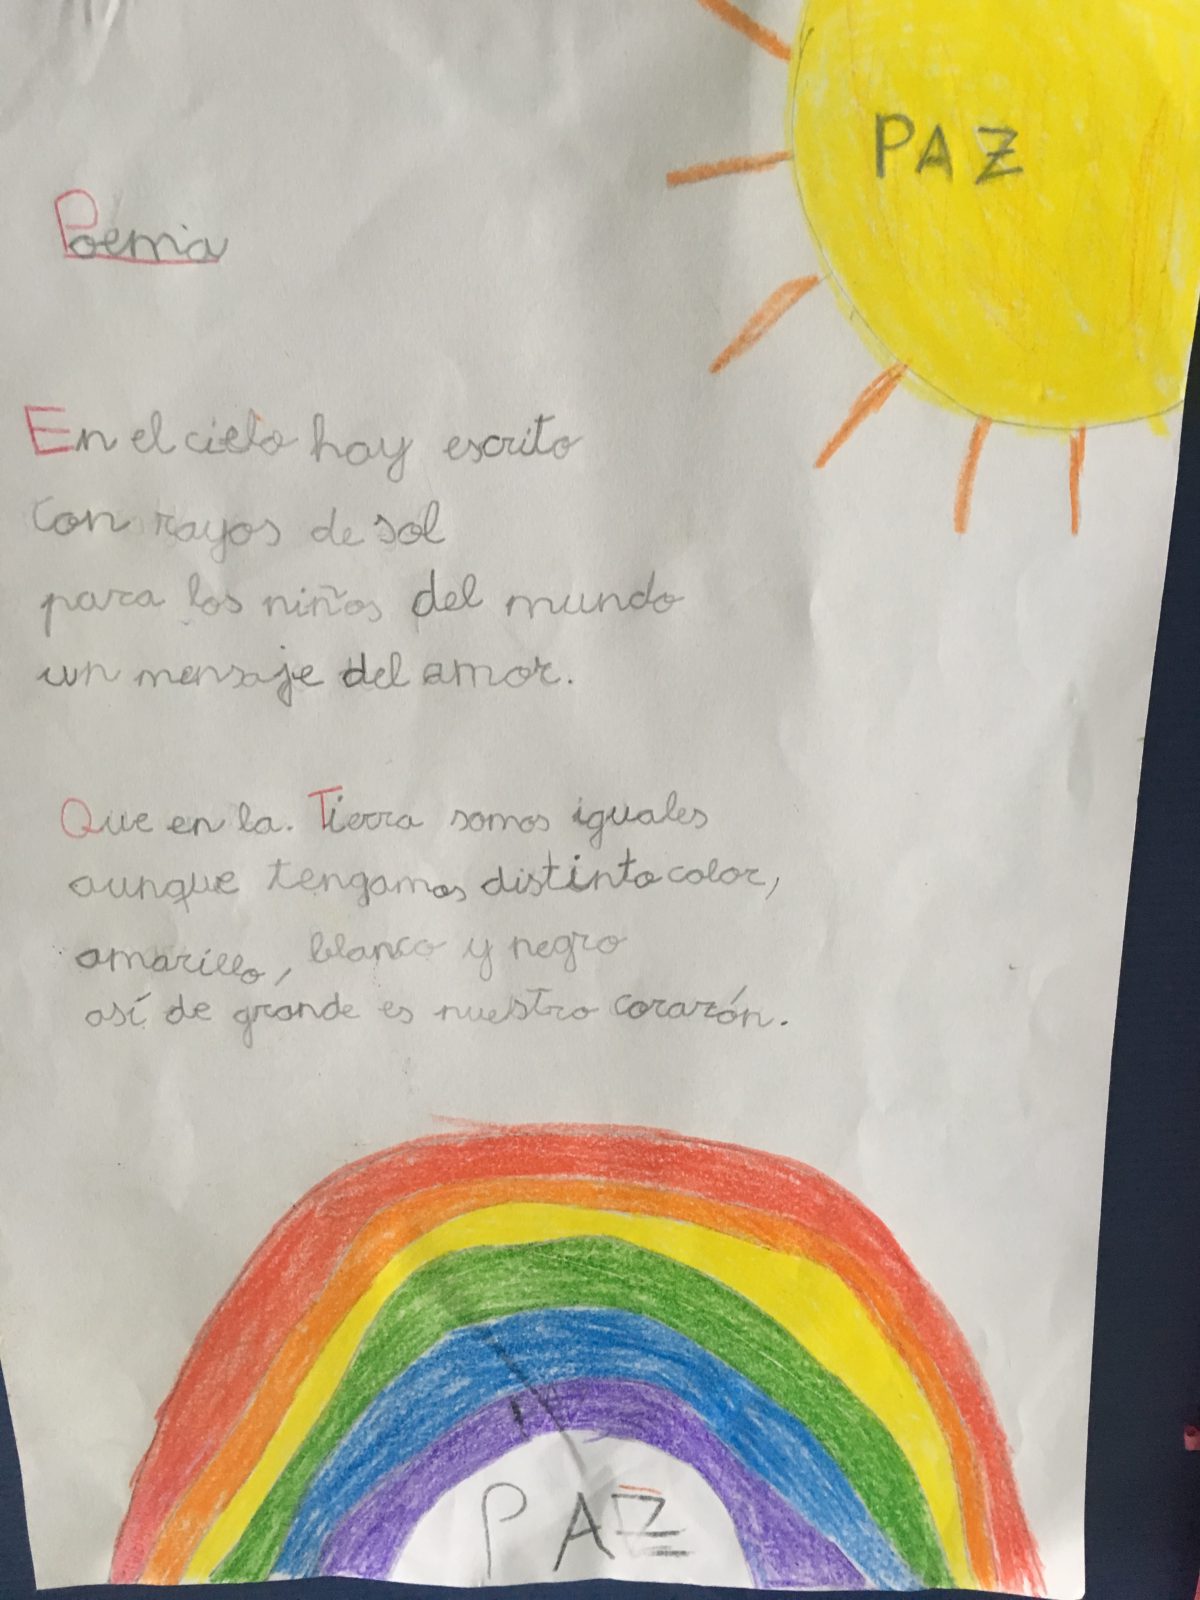 PAZ
Poema
En el cielo hay escrito
con rayos de sol
para los niños del mundo
un mensaje del amor.
Que en la. Tierra somos iguales
aunque tengamos distinto color,
amarillo, blanco y negro
así de grande es nuestro corazón.
PAZ